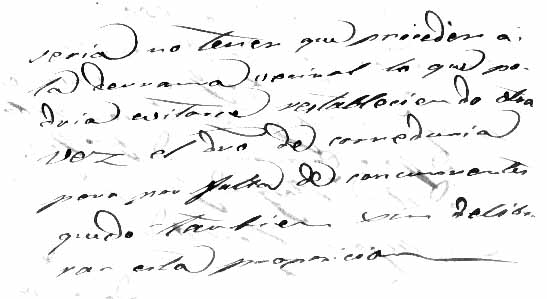 seria no tener que proceder á
la derrama vecinal lo que po-
dria evitarse restableciendo otra
vez el dro de correduria
pero por falta de concurrentes
quedo tambien sin delibe
rar esta proposicion